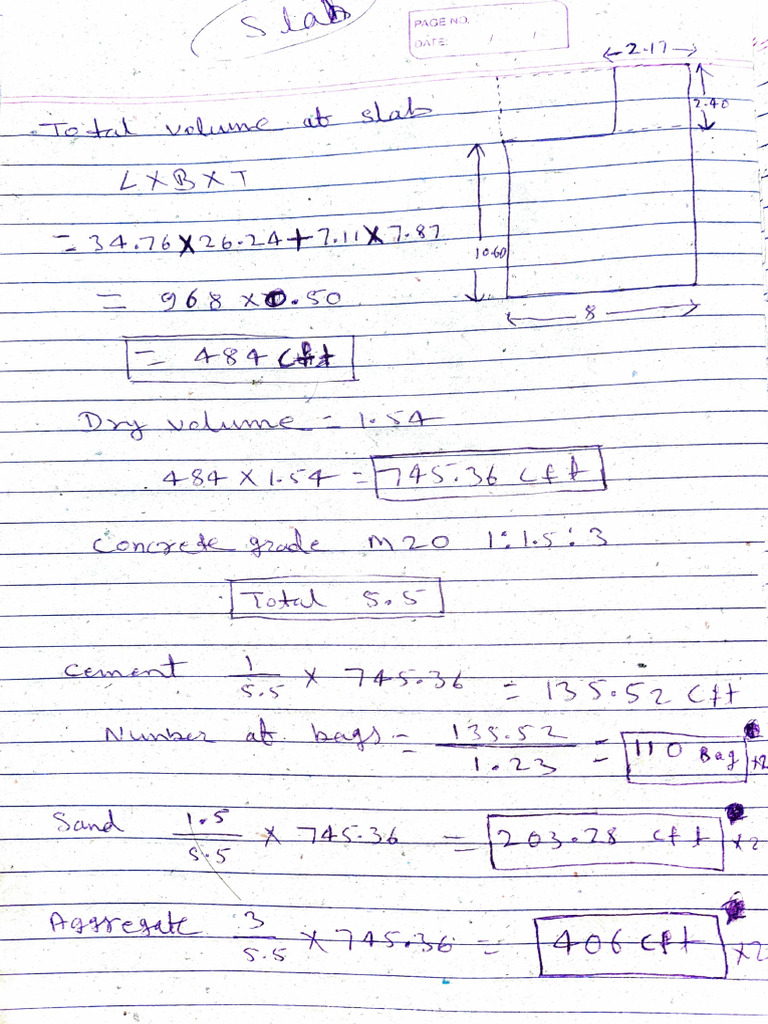 Slab
PAGE NO.
DATE: / /
2.17
2.40
Total volume at slab
L X B X T
= 34.76 X 26.24 + 7.11 X 7.87
10.60
= 968 X 0.50
8
= 484 Cft
Dry volume = 1.54
484 X 1.54 = 745.36 cft
Concrete grade M20 1:1.5:3
Total 5.5
Cement 1/5.5 X 745.36 = 135.52 Cft
Number at bags = 135.52/1.23 = 110 Bag X2
Sand 1.5/5.5 X 745.36 = 203.28 cft X2
Aggregate 3/5.5 X 745.36 = 406 cft X2